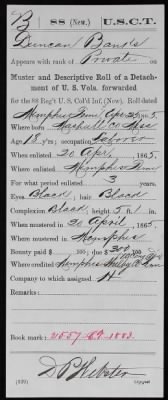 B 88 (New.) U.S.C.T.
Duncan Banks
Appears with rank of Private on
Muster and Descriptive Roll of a Detach-
ment of U. S. Vols. forwarded
for the 88 Reg't U. S. Col'd Inf. (New). Roll dated
Memphis Tenn Apr 25, 1865.
Where born Marshall Co Miss
Age 18 y'rs; occupation Laborer
When enlisted 20 Apr, 1865.
Where enlisted Memphis Tenn
For what period enlisted years.
Eyes Black; hair Black
Complexion Black; height 5 ft. in.
When mustered in 20 April, 1865.
Where mustered in Memphis
Bounty paid $ 100; due $ 100
Where credited Memphis
Company to which assigned H
Remarks:
Book mark: 1883.
D P Webster
(339) Copyist.